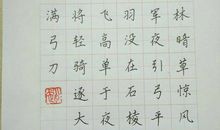 林暗草惊风
军夜引弓平
羽没在石棱
飞高单于夜
将轻骑遂大
满弓刀